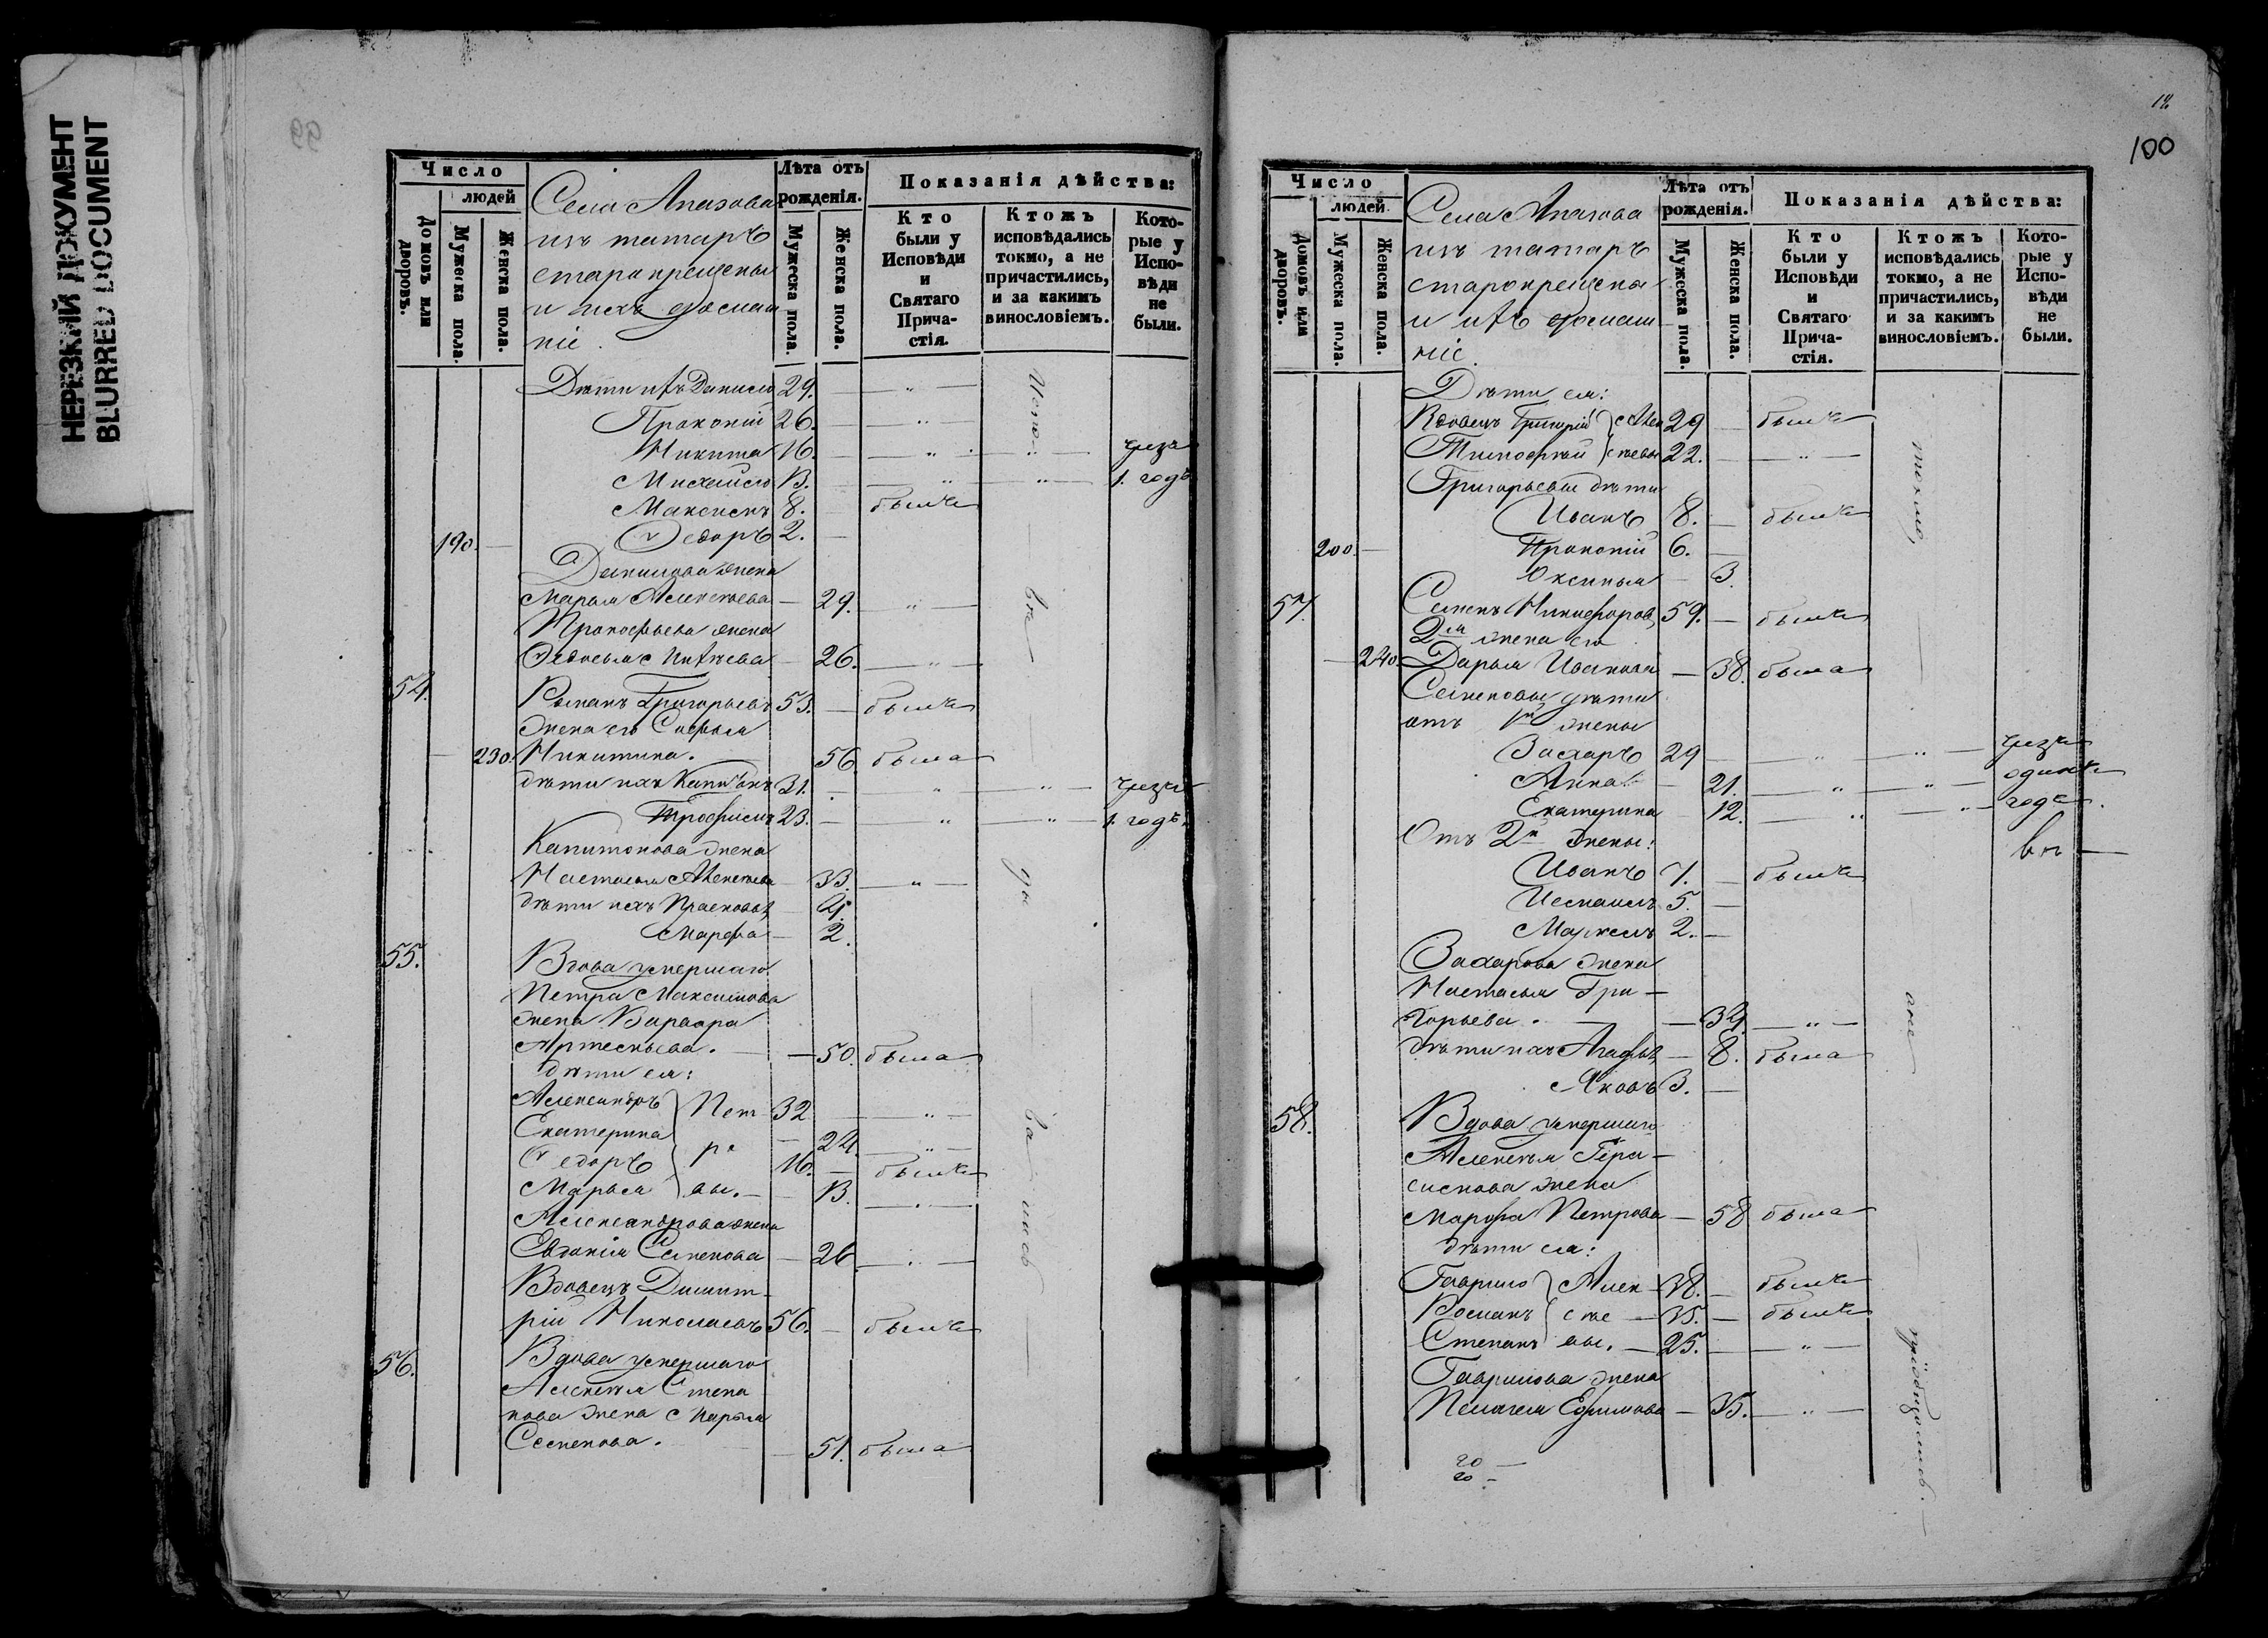 НЕРЕЗКИЙ ДОКУМЕНТ
BLURRED DOCUMENT
99
Число
людей
Домовъ или дворовъ.
Мужеска пола.
Женска пола.
Села Апазова
изъ татаръ
старокрещены
и ихъ домаш
ніе.
Лѣта отъ рожденія.
Мужеска пола.
Женска пола.
Показанія дѣйства:
Кто были у Исповѣди и Святаго Прича-стія.
Ктожъ исповѣдались токмо, а не причастились, и за какимъ винословіемъ.
Кото-рые у Испо-вѣди не были.
Дѣти ихъ Данило 29. — " —
Прокопій 26. — " —
Никита 16. — " — " — чрезъ
Михайло 13. — " — " — 1. годъ
Максимъ 8. былъ
190. — Ѳедоръ 2. —
Данилова жена
Марья Алексѣева — 29. — " —
Прокофьева жена
Ѳедосья — 26. — " —
54. Романъ Григорьевъ 53. — былъ
Жена его Софья
— 230. Никитина. 56. была
дѣти ихъ Капитонъ 31. — " — " — чрезъ
Трофимъ 23. — " — " — 1. годъ.
Капитонова жена
Настасья Алексѣева — 33. — " —
дѣти ихъ Прасковья — 4.
Марфа — 2.
55. Вдова умершаго
Петра Максимова
жена Варвара
Артемьева. — — 50. была
дѣти ея:
Александръ Пет 32 — " —
Екатерина — 24. — " —
Ѳедоръ ро 16. — былъ
Марья вы. — 13. — " —
Александрова жена
Евгенія Семенова — 26. — " —
Вдовецъ Димит-
рій Николаевъ 56. — былъ
56. Вдова умершаго
Алексѣя Степа
нова жена Марья
Семенова. — 51. была
100
Число
людей.
Домовъ или дворовъ.
Мужеска пола.
Женска пола.
Села Апазова
изъ татаръ
старокрещены
и ихъ домаш
ніе.
Лѣта отъ рожденія.
Мужеска пола.
Женска пола.
Показанія дѣйства:
Кто были у Исповѣди и Святаго Прича-стія.
Ктожъ исповѣдались токмо, а не причастились, и за какимъ винословіемъ.
Кото-рые у Испо-вѣди не были.
Дѣти ея:
Вдовецъ Григорій Алек 29 — былъ
Тимофей сѣевы 22. — " —
Григорьевы дѣти
Иванъ 8. — былъ
200. — Прокопій 6. —
Оксинья — 3.
57. Семенъ Никифоровъ 59. — былъ
2я жена его
— 240. Дарья Иванова — 38. была
Семеновы дѣти
отъ 1й жены
Захаръ 29 — " — " — чрезъ
Анна — 21. — " — " — одинъ
Екатерина — 12. — " — " — годъ.
Отъ 2й жены:
Иванъ 7. — былъ
5. —
2. —
Захарова жена
Настасья Гри —
горьева. — — 34. — " —
дѣти ихъ Агафья — 8. была
Яковъ 3. —
58. Вдова умершаго
Алексѣя Гера —
симова жена
Марфа Петрова — 58 была
дѣти ея:
Гаврило Алек — 38. — былъ
Романъ сѣе — 35. — былъ
Степанъ вы. — 25. — " —
Гаврилова жена
Пелагея Ефимова — 35. — " —
20 —
20 —